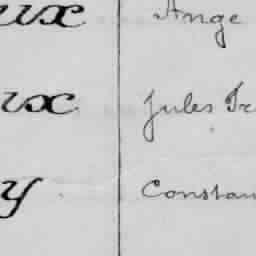 ux Ange
ux Jules Fr
y Constan